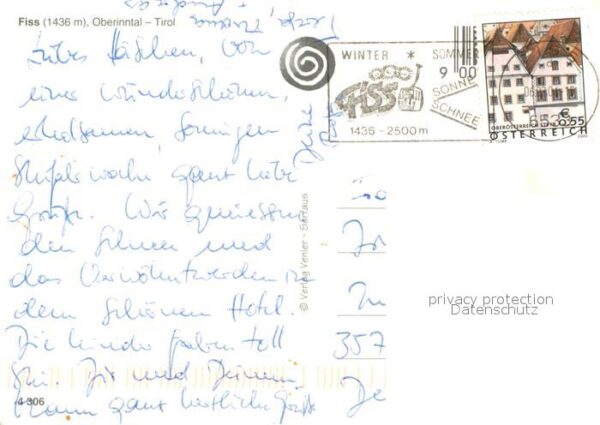 Fiss (1436 m), Oberinntal – Tirol
Liebes Häschen, von
einer wunderschönen,
erholsamen, sonnigen
Skiwoche ganz liebe
Grüße. Wir geniessen
den Schnee und
das Verwöhntwerden in
dem schönen Hotel.
Die Kinder fahren toll
Ski. Dir und Deinem
Mann ganz herzliche Grüße
4-306
© Verlag Venier - Serfaus
WINTER * SOMMER
9 00
FISS
SONNE
SCHNEE
1436 - 2500 m
OBERÖSTERREICH
€ 0,55
ÖSTERREICH
357
privacy protection
Datenschutz